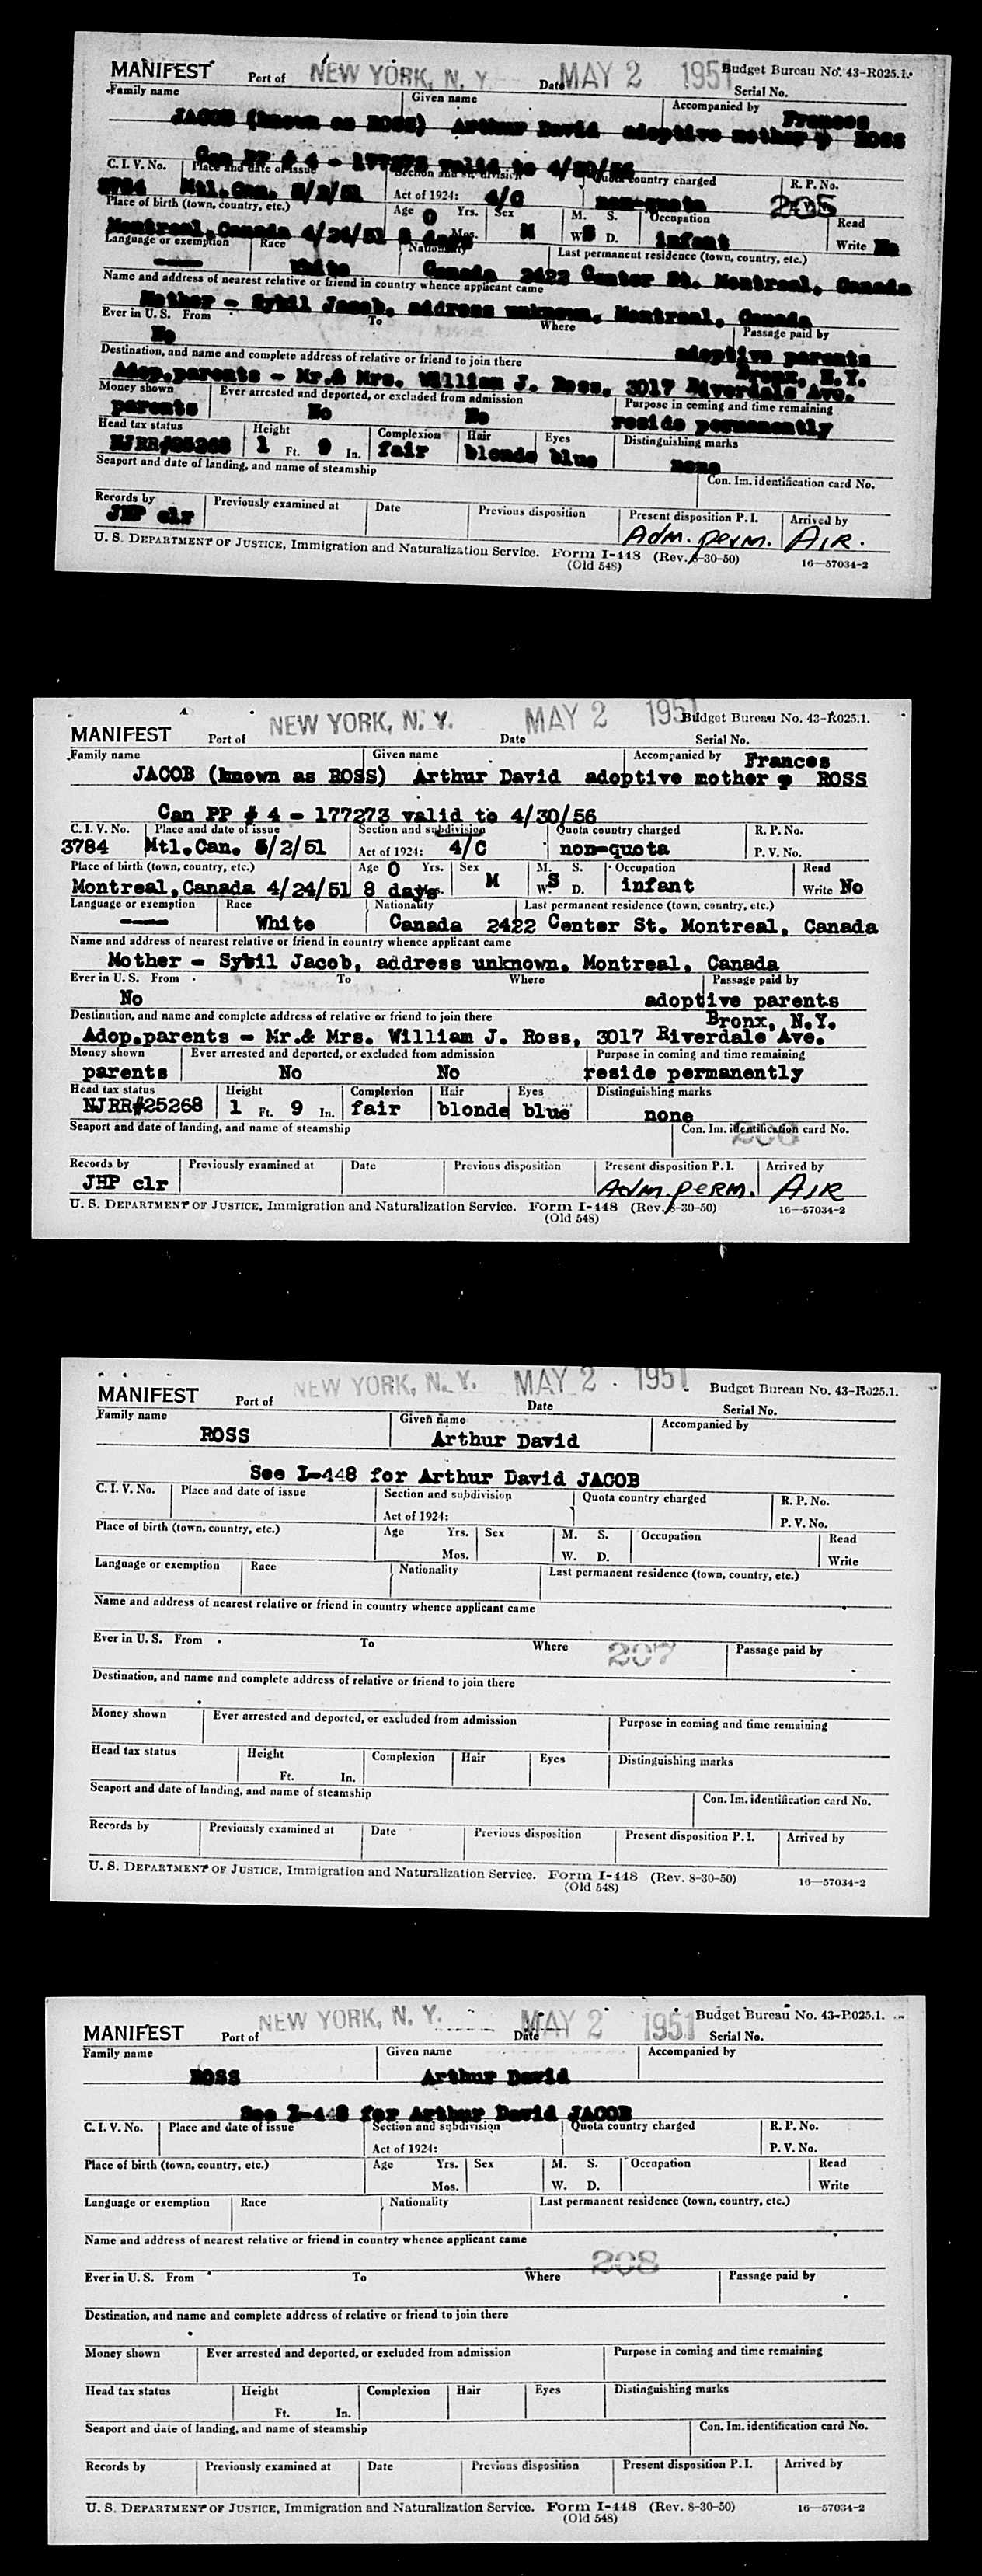 MANIFEST Port of NEW YORK, N. Y. Date MAY 2 1951 Budget Bureau No. 43-R025.1.
Serial No.
Family name Given name Accompanied by Frances
JACOB (known as ROSS) Arthur David adoptive mother ROSS
Can PP # 4 - 177273 valid to 4/30/56
C. I. V. No. Place and date of issue Section and subdivision Quota country charged R. P. No.
3784 Mtl.Can. 5/2/51 Act of 1924: 4/C non-quota 205
Place of birth (town, country, etc.) Age 0 Yrs. Sex M. S. Occupation Read
Montreal,Canada 4/24/51 8 days Mos. M W. S D. infant Write No
Language or exemption Race Nationality Last permanent residence (town, country, etc.)
—— White Canada 2422 Center St. Montreal, Canada
Name and address of nearest relative or friend in country whence applicant came
Mother - Sybil Jacob, address unknown, Montreal, Canada
Ever in U. S. From To Where Passage paid by
No adoptive parents
Destination, and name and complete address of relative or friend to join there Bronx, N.Y.
Adop.parents - Mr.& Mrs. William J. Ross, 3017 Riverdale Ave.
Money shown Ever arrested and deported, or excluded from admission Purpose in coming and time remaining
parents No No reside permanently
Head tax status Height Complexion Hair Eyes Distinguishing marks
NJRR#25268 1 Ft. 9 In. fair blonde blue none
Seaport and date of landing, and name of steamship Con. Im. identification card No.
Records by Previously examined at Date Previous disposition Present disposition P. I. Arrived by
JHP clr Adm. perm. AIR.
U. S. DEPARTMENT OF JUSTICE, Immigration and Naturalization Service. Form I-448 (Rev. 8-30-50) 16—57034-2
(Old 548)
MANIFEST Port of NEW YORK, N. Y. Date MAY 2 1951 Budget Bureau No. 43-R025.1.
Serial No.
Family name Given name Accompanied by Frances
JACOB (known as ROSS) Arthur David adoptive mother ROSS
Can PP # 4 - 177273 valid to 4/30/56
C. I. V. No. Place and date of issue Section and subdivision Quota country charged R. P. No.
3784 Mtl.Can. 5/2/51 Act of 1924: 4/C non-quota P. V. No.
Place of birth (town, country, etc.) Age 0 Yrs. Sex M. S. Occupation Read
Montreal,Canada 4/24/51 8 days Mos. M W. S D. infant Write No
Language or exemption Race Nationality Last permanent residence (town, country, etc.)
—— White Canada 2422 Center St. Montreal, Canada
Name and address of nearest relative or friend in country whence applicant came
Mother - Sybil Jacob, address unknown, Montreal, Canada
Ever in U. S. From To Where Passage paid by
No adoptive parents
Destination, and name and complete address of relative or friend to join there Bronx, N.Y.
Adop.parents - Mr.& Mrs. William J. Ross, 3017 Riverdale Ave.
Money shown Ever arrested and deported, or excluded from admission Purpose in coming and time remaining
parents No No reside permanently
Head tax status Height Complexion Hair Eyes Distinguishing marks
NJRR#25268 1 Ft. 9 In. fair blonde blue none
Seaport and date of landing, and name of steamship Con. Im. identification card No.
206
Records by Previously examined at Date Previous disposition Present disposition P. I. Arrived by
JHP clr Adm. PERM. AIR
U. S. DEPARTMENT OF JUSTICE, Immigration and Naturalization Service. Form I-448 (Rev. 8-30-50) 16—57034-2
(Old 548)
MANIFEST Port of NEW YORK, N. Y. Date MAY 2 1951 Budget Bureau No. 43-R025.1.
Serial No.
Family name Given name Accompanied by
ROSS Arthur David
See I-448 for Arthur David JACOB
C. I. V. No. Place and date of issue Section and subdivision Quota country charged R. P. No.
Act of 1924: P. V. No.
Place of birth (town, country, etc.) Age Yrs. Sex M. S. Occupation Read
Mos. W. D. Write
Language or exemption Race Nationality Last permanent residence (town, country, etc.)
Name and address of nearest relative or friend in country whence applicant came
Ever in U. S. From To Where 207 Passage paid by
Destination, and name and complete address of relative or friend to join there
Money shown Ever arrested and deported, or excluded from admission Purpose in coming and time remaining
Head tax status Height Complexion Hair Eyes Distinguishing marks
Ft. In.
Seaport and date of landing, and name of steamship Con. Im. identification card No.
Records by Previously examined at Date Previous disposition Present disposition P. I. Arrived by
U. S. DEPARTMENT OF JUSTICE, Immigration and Naturalization Service. Form I-448 (Rev. 8-30-50) 16—57034-2
(Old 548)
MANIFEST Port of NEW YORK, N. Y. Date MAY 2 1951 Budget Bureau No. 43-R025.1.
Serial No.
Family name Given name Accompanied by
ROSS Arthur David
See I-448 for Arthur David JACOB
C. I. V. No. Place and date of issue Section and subdivision Quota country charged R. P. No.
Act of 1924: P. V. No.
Place of birth (town, country, etc.) Age Yrs. Sex M. S. Occupation Read
Mos. W. D. Write
Language or exemption Race Nationality Last permanent residence (town, country, etc.)
Name and address of nearest relative or friend in country whence applicant came
208
Ever in U. S. From To Where Passage paid by
Destination, and name and complete address of relative or friend to join there
Money shown Ever arrested and deported, or excluded from admission Purpose in coming and time remaining
Head tax status Height Complexion Hair Eyes Distinguishing marks
Ft. In.
Seaport and date of landing, and name of steamship Con. Im. identification card No.
Records by Previously examined at Date Previous disposition Present disposition P. I. Arrived by
U. S. DEPARTMENT OF JUSTICE, Immigration and Naturalization Service. Form I-448 (Rev. 8-30-50) 16—57034-2
(Old 548)